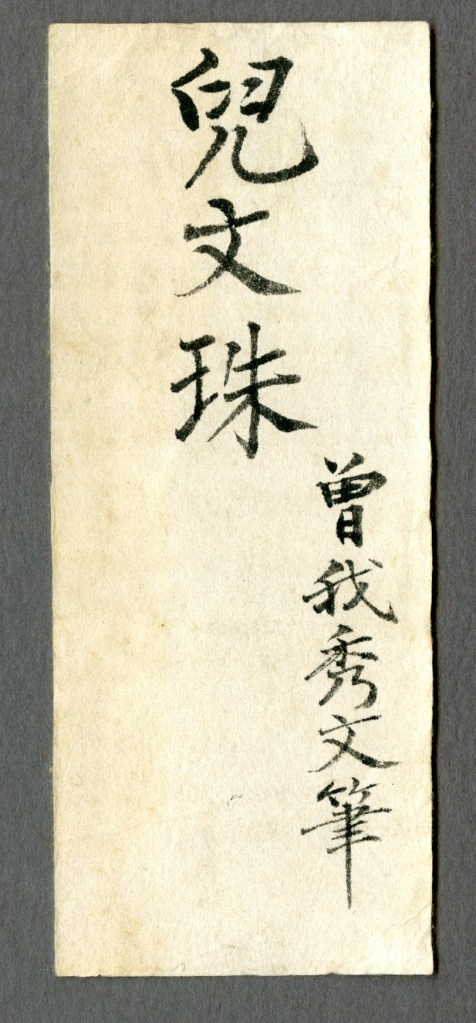 兒文珠
曽我秀文筆